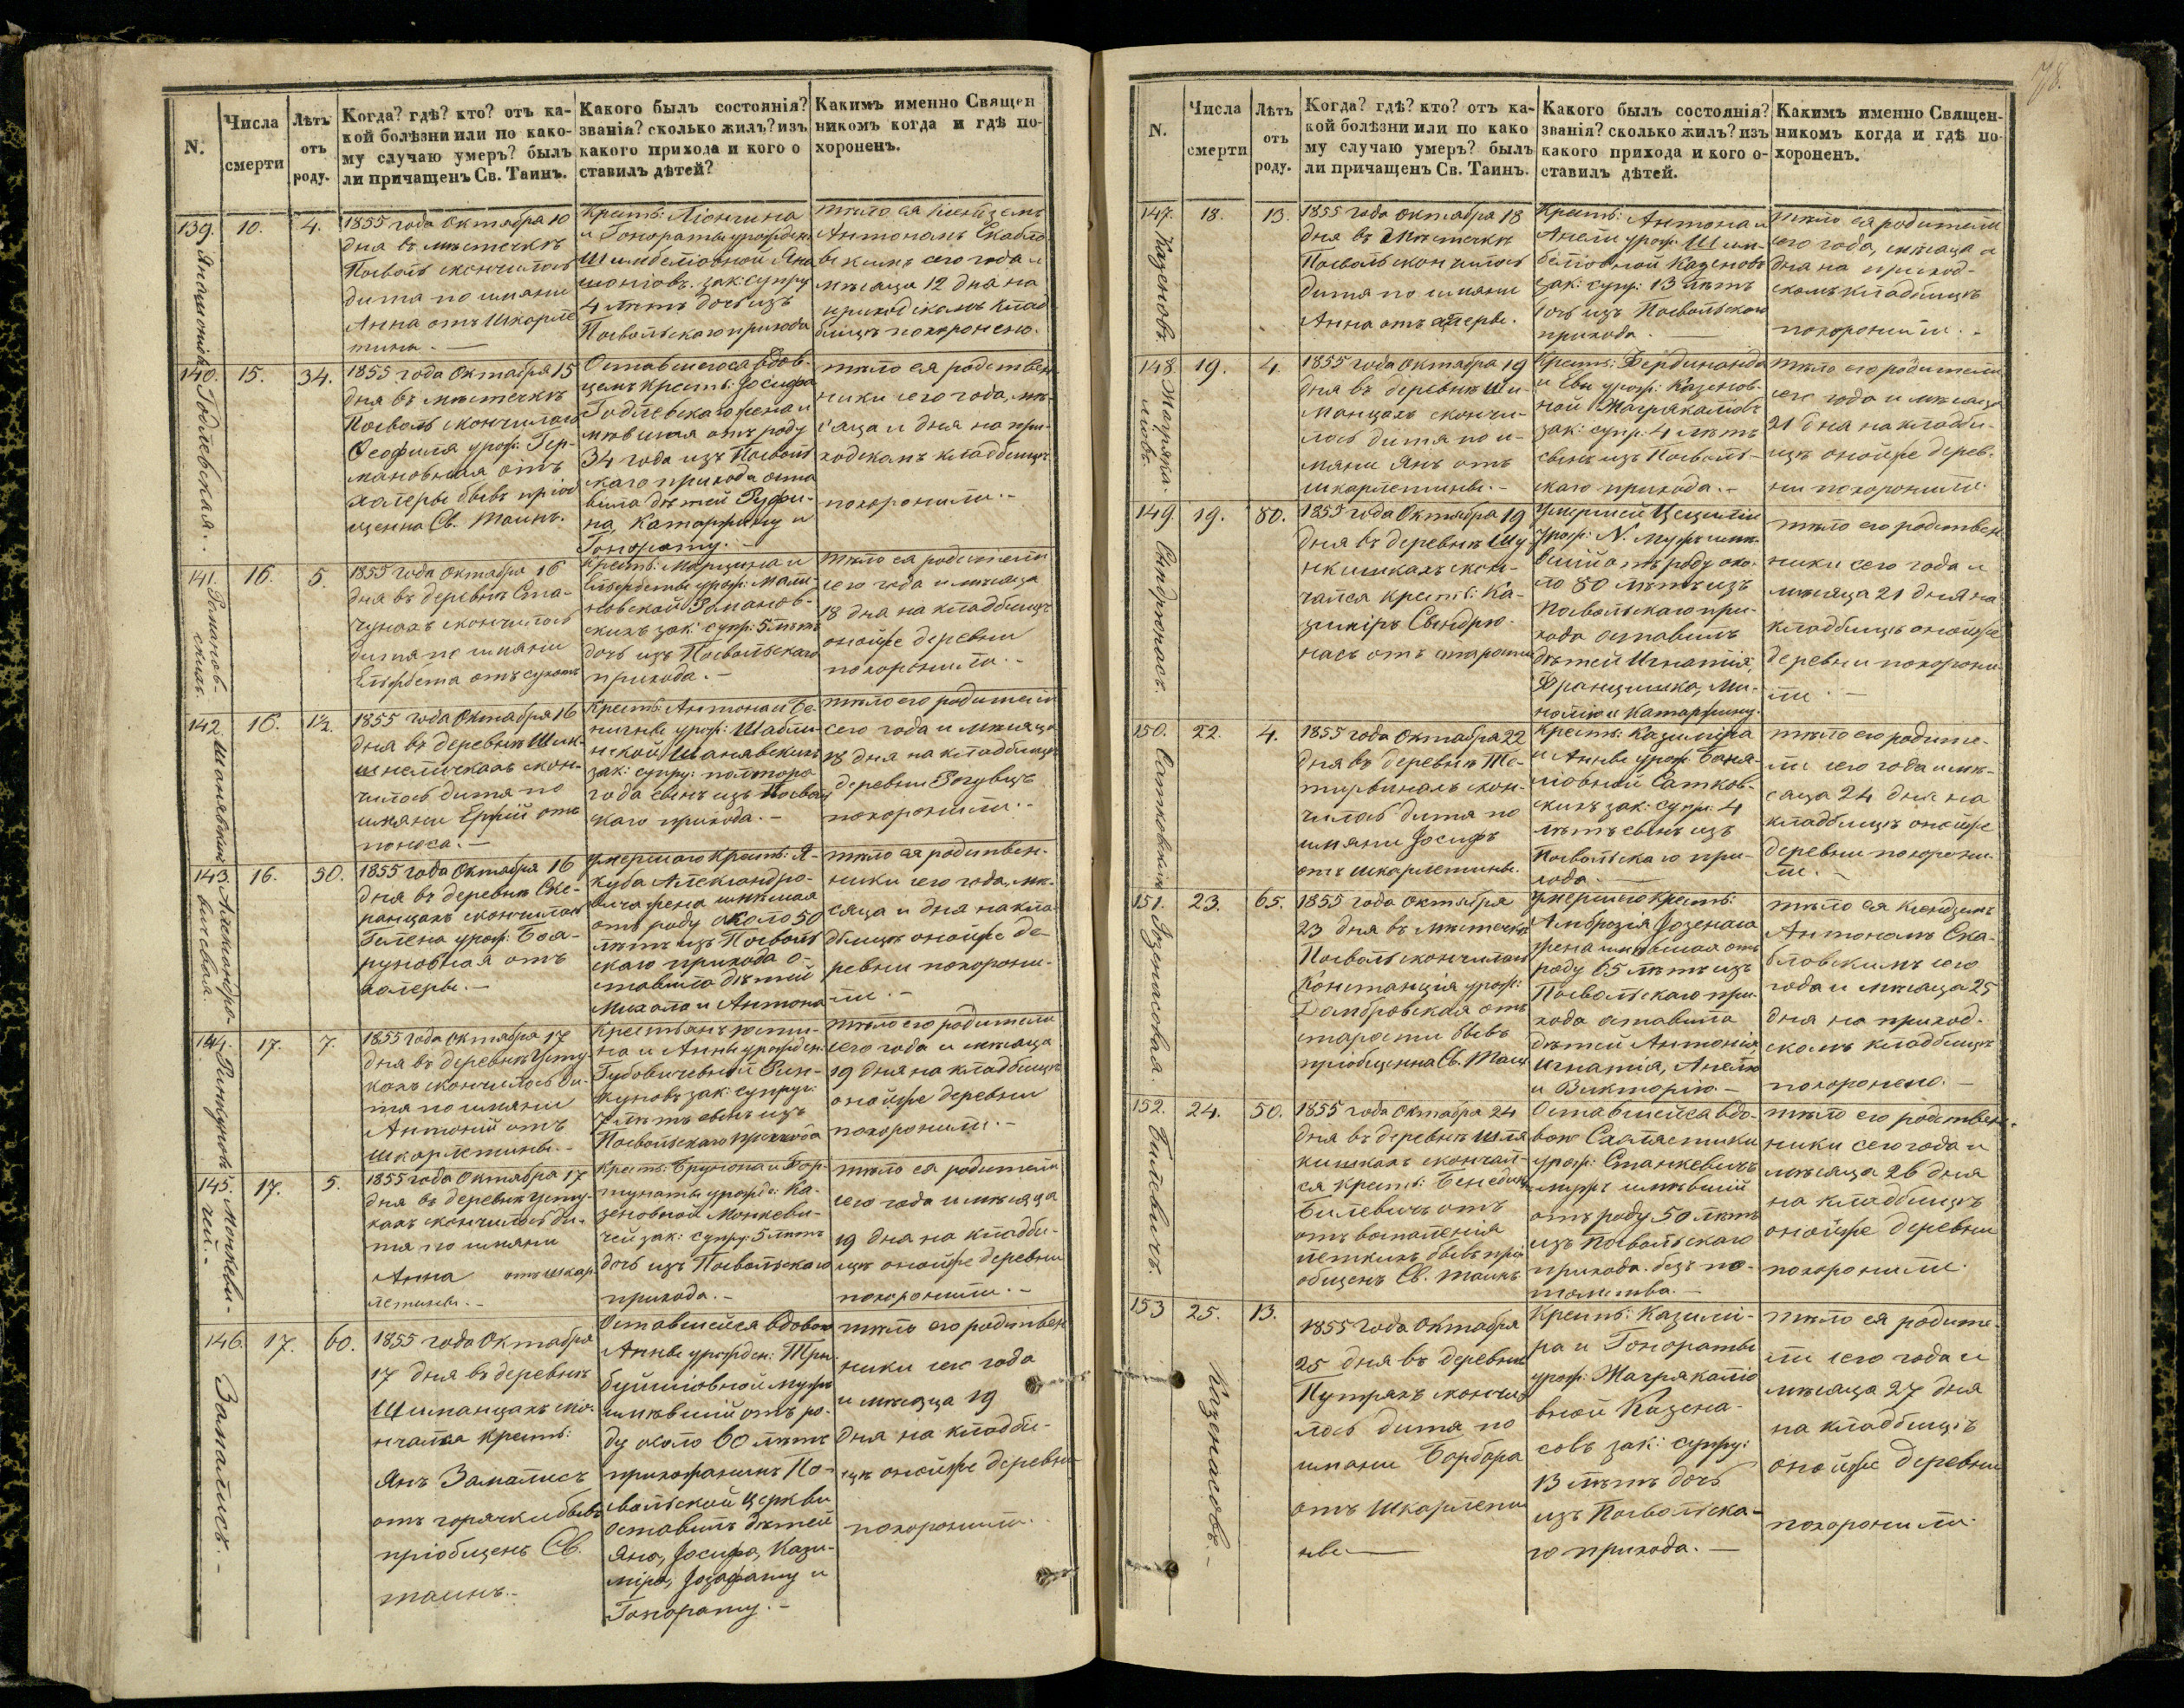 N.
Числа
смерти
Лѣтъ
отъ
роду.
Когда? гдѣ? кто? отъ ка-
кой болѣзни или по како-
му случаю умеръ? былъ
ли причащенъ Св. Таинъ.
Какого былъ состоянія?
званія? сколько жилъ? изъ
какого прихода и кого о
ставилъ дѣтей?
Какимъ именно Священ
никомъ когда и гдѣ по-
хороненъ.
139.
10.
4.
1855 года Октября 10
дня въ мѣстечкѣ
Посволь скончилось
дитя по имяни
Анна отъ шкарле
тины. —
Крест:
и Гонораты урожден:
зак: супру
4 лѣтъ дочь изъ
Посвольскаго прихода
тѣло ея
Антономъ Скабло
сего года и
мѣсяца 12 дня на
приходскомъ клад
бищѣ похоронено.
140. Годлевская.
15.
34.
1855 года Октября 15
дня въ мѣстечкѣ
Посволь скончилась
Феофила урож: Гер-
мановная отъ
холеры бывъ пріоб
щенна Св. Таинъ.
Оставшегося вдов-
цемъ крест: Іосифа
Годлевскаго жена и
мѣвшая отъ роду
34 года изъ Посволь
скаго прихода оста
вила дѣтей Руфи-
на, Катаржину и
Гонорату. —
тѣло ея родствен
ники сего года, мѣ-
сяца и дня на при-
ходскомъ кладбищѣ
похоронили. —
141. Романов-
скихъ.
16.
5.
1855 года Октября 16
дня въ деревнѣ Ста-
чунахъ скончилось
дитя по имяни
Ельжбета отъ сухотъ
Крест: Марцина и
Ельжбеты урож: Мали-
новской Романов-
скихъ зак: супр: 5 лѣтъ
дочь изъ Посвольскаго
прихода. —
тѣло ея родители
сего года и мѣсяца
18 дня на кладбищѣ
онойже деревни
похоронили. —
142.
16.
1½.
1855 года Октября 16
дня въ деревнѣ
скон-
чилось дитя по
имяни Ержій отъ
поноса. —
Крест: Антона и Бе-
нигны урож: Шабли-
нской
зак: супру: полтора
года сынъ изъ Посволь
скаго прихода. —
тѣло его родители
сего года и мѣсяца
18 дня на кладбищѣ
деревни
похоронили. —
143. Александро-
вичевая.
16.
50.
1855 года Октября 16
дня въ деревнѣ Ске-
ранцахъ скончилась
Гелена урож: Боя-
руновная отъ
холеры. —
умершаго Крест: Я-
куба Александро-
вича жена имѣвшая
отъ роду около 50
лѣтъ изъ Посволь
скаго прихода о-
ставила дѣтей
Михала и Антона
тѣло ея родствен-
ники сего года, мѣ-
сяца и дня на кла-
дбищѣ онойже де-
ревни похорони-
ли. —
144. Ринкуновъ
17.
7.
1855 года Октября 17
дня въ деревнѣ Усту-
кахъ скончилось ди-
тя по имяни
Антоній отъ
шкарлетины. —
Крестьянъ Юсти-
на и Анны урожден:
Губовичевной Рин-
куновъ зак: супруг:
7 лѣтъ сынъ изъ
Посвольскаго прихода
тѣло его родители
сего года и мѣсяца
19 дня на кладбищѣ
онойже деревни
похоронили. —
145. Монкеви-
чей. —
17.
5.
1855 года Октября 17
дня въ деревнѣ Усту-
кахъ скончилось ди-
тя по имяни
Анна отъ шкар-
летины. —
Крест: Брунона и Фор-
тунаты урожде: Ка-
зеновной Монкеви-
чей зак: супру: 5 лѣтъ
дочь изъ Посвольскаго
прихода. —
тѣло ея родители
сего года и мѣсяца
19 дня на кладби-
щѣ онойже деревни
похоронили. —
146. Замалисъ. —
17.
60.
1855 года Октября
17 дня въ деревнѣ
Шиманцахъ ско-
нчался крест:
Янъ Замалисъ
отъ горячки бывъ
пріобщенъ Св.
таинъ. —
Оставшейся вдовою
Анны урожден: Тры-
мужъ
имѣвшій отъ ро-
ду около 60 лѣтъ
прихожанинъ По-
свольской церкви
оставилъ дѣтей
Яна, Іосифа, Кази-
міра, Іозафату и
Гонорату. —
тѣло его родствен
ники сего года
и мѣсяца 19
дня на кладби-
щѣ онойже деревни
похоронили. —
78.
N.
Числа
смерти
Лѣтъ
отъ
роду.
Когда? гдѣ? кто? отъ ка-
кой болѣзни или по како
му случаю умеръ? былъ
ли причащенъ Св. Таинъ.
Какого былъ состоянія?
званія? сколько жилъ? изъ
какого прихода и кого о-
ставилъ дѣтей.
Какимъ именно Священ-
никомъ когда и гдѣ по-
хороненъ.
147. Казеновъ
18.
13.
1855 года Октября 18
дня въ мѣстечкѣ
Посволь скончилось
дитя по имяни
Анна отъ холеры.
Крест: Антона и
Анели урож: Шим-
Казеновъ
зак: супр: 13 лѣтъ
дочь изъ Посвольскаго
прихода —
тѣло ея родители
сего года, мѣсяца и
дня на приход-
скомъ кладбищѣ
похоронили. —
148.
19.
4.
1855 года Октября 19
дня въ деревнѣ Ши-
манцахъ скончи-
лось дитя по и-
мяни Янъ отъ
шкарлетины. —
Крест: Фердинанда
и Евы урож: Казенов-
ной
зак: супр: 4 лѣтъ
сынъ изъ Посволь-
скаго прихода. —
тѣло его родители
сего года и мѣсяца
21 дня на кладби-
щѣ онойже дерев-
ни похоронили.
149.
19.
80.
1855 года Октября 19
дня въ деревнѣ Шу-
нкишкахъ скон-
чался крест: Ка-
зиміръ
насъ отъ старости
умершей Цецыліи
урож: N. мужъ имѣ-
вшій отъ роду око-
ло 80 лѣтъ изъ
Посвольскаго при-
хода оставилъ
дѣтей Игнатія,
Францишка, Ми-
халю и Катаржину.
тѣло его родствен
ники сего года и
мѣсяца 21 дня на
кладбищѣ онойже
деревни похорони-
ли. —
150. Сатковскихъ
22.
4.
1855 года Октября 22
дня въ деревнѣ Те-
тирвинахъ скон-
чилось дитя по
имяни Іосифъ
отъ шкарлетины.
Крест: Казиміра
и Анны урож:
Сатков-
скихъ зак: супр: 4
лѣтъ сынъ изъ
Посвольскаго при-
хода. —
тѣло его родите-
ли сего года и мѣ-
сяца 24 дня на
кладбищѣ онойже
деревни похорони-
ли. —
151. Іозенасовая.
23.
65.
1855 года Октября
23 дня въ мѣстечкѣ
Посволь скончилась
Констанція урож:
Домбровская отъ
старости бывъ
пріобщенна Св. Таин
умершего крест:
Амброзія Іозенаса
жена имѣвшая отъ
роду 65 лѣтъ изъ
Посвольскаго при-
хода оставила
дѣтей Антонія,
Игнатія, Анелю
и Викторію. —
тѣло ея ксендземъ
Антономъ Ска-
бловскимъ сего
года и мѣсяца 25
дня на приход-
скомъ кладбищѣ
похоронено. —
152. Билевичъ.
24.
50.
1855 года Октября 24
дня въ деревнѣ Шля
кишкахъ скончал-
ся крест: Бенедик
Билевичъ отъ
отъ воспаленія
легкихъ бывъ прі
общенъ Св. таинъ
Оставшейся вдо-
вою Схоластики
урож: Станкевичъ
мужъ имѣвшій
отъ роду 50 лѣтъ
изъ Посвольскаго
прихода. безъ по-
томства. —
тѣло его родствен-
ники сего года и
мѣсяца 26 дня
на кладбищѣ
онойже деревни
похоронили.
153 Казенасовъ. —
25.
13.
1855 года Октября
25 дня въ деревнѣ
Путряхъ скончи
лось дитя по
имяни Борбора
отъ шкарлети
ны —
Крест: Казимі-
ра и Гонораты
урож:
вной Казена-
совъ зак: супру:
13 лѣтъ дочь
изъ Посвольска-
го прихода. —
тѣло ея родите-
ли сего года и
мѣсяца 27 дня
на кладбищѣ
онойже деревни
похоронили.